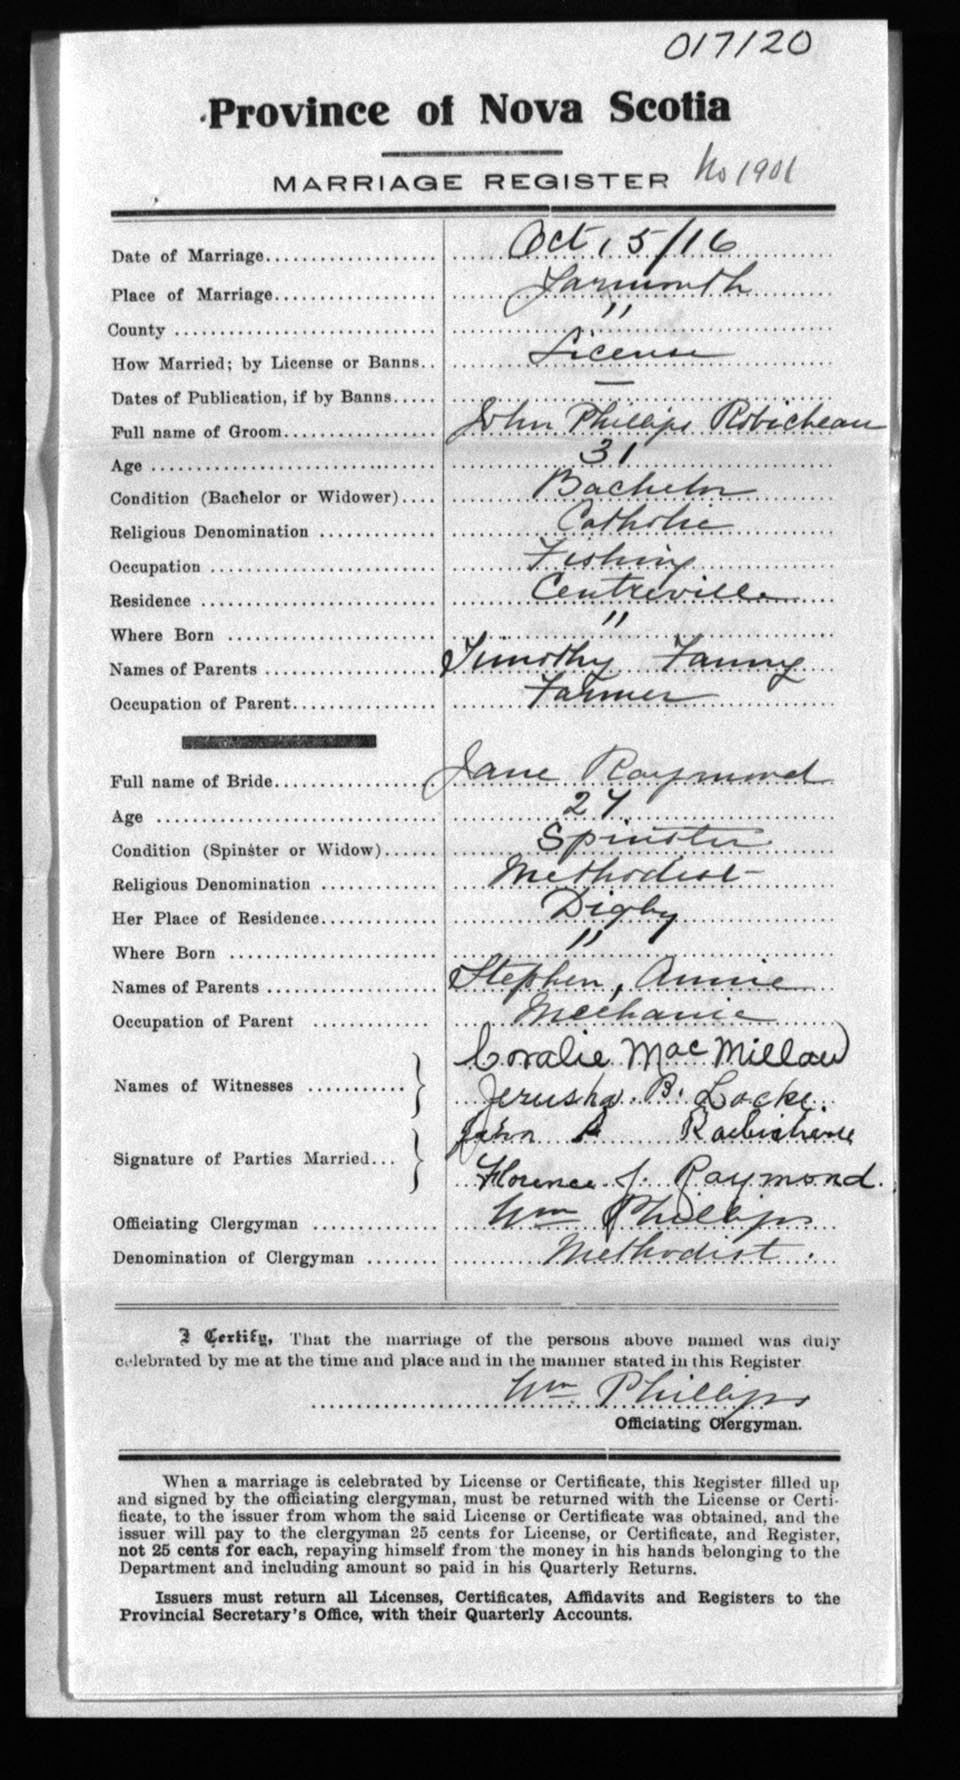 017120
Province of Nova Scotia
MARRIAGE REGISTER No 1901
Date of Marriage.................. Oct, 5/16
Place of Marriage................. Yarmouth
County ........................... "
How Married; by License or Banns.. License
Dates of Publication, if by Banns..... —
Full name of Groom................ John Phillips Robicheau
Age .............................. 31
Condition (Bachelor or Widower).... Bachelor
Religious Denomination ............ Catholic
Occupation ....................... Fishing
Residence ........................ Centreville
Where Born ....................... "
Names of Parents ................. Timothy Fanny
Occupation of Parent.............. Farmer
Full name of Bride................ Jane Raymond
Age .............................. 27
Condition (Spinster or Widow)...... Spinster
Religious Denomination ............ Methodist
Her Place of Residence............. Digby
Where Born ....................... "
Names of Parents ................. Stephen, Annie
Occupation of Parent ............. Mechanic
Names of Witnesses ........... } Coralie MacMillan
Jerusha B. Locke.
Signature of Parties Married... } John
Florence J. Raymond.
Officiating Clergyman ............ Wm Phillips
Denomination of Clergyman ........ Methodist.
I Certify, That the marriage of the persons above named was duly
celebrated by me at the time and place and in the manner stated in this Register
Wm Phillips
Officiating Clergyman.
When a marriage is celebrated by License or Certificate, this Register filled up
and signed by the officiating clergyman, must be returned with the License or Certi-
ficate, to the issuer from whom the said License or Certificate was obtained, and the
issuer will pay to the clergyman 25 cents for License, or Certificate, and Register,
not 25 cents for each, repaying himself from the money in his hands belonging to the
Department and including amount so paid in his Quarterly Returns.
Issuers must return all Licenses, Certificates, Affidavits and Registers to the
Provincial Secretary's Office, with their Quarterly Accounts.